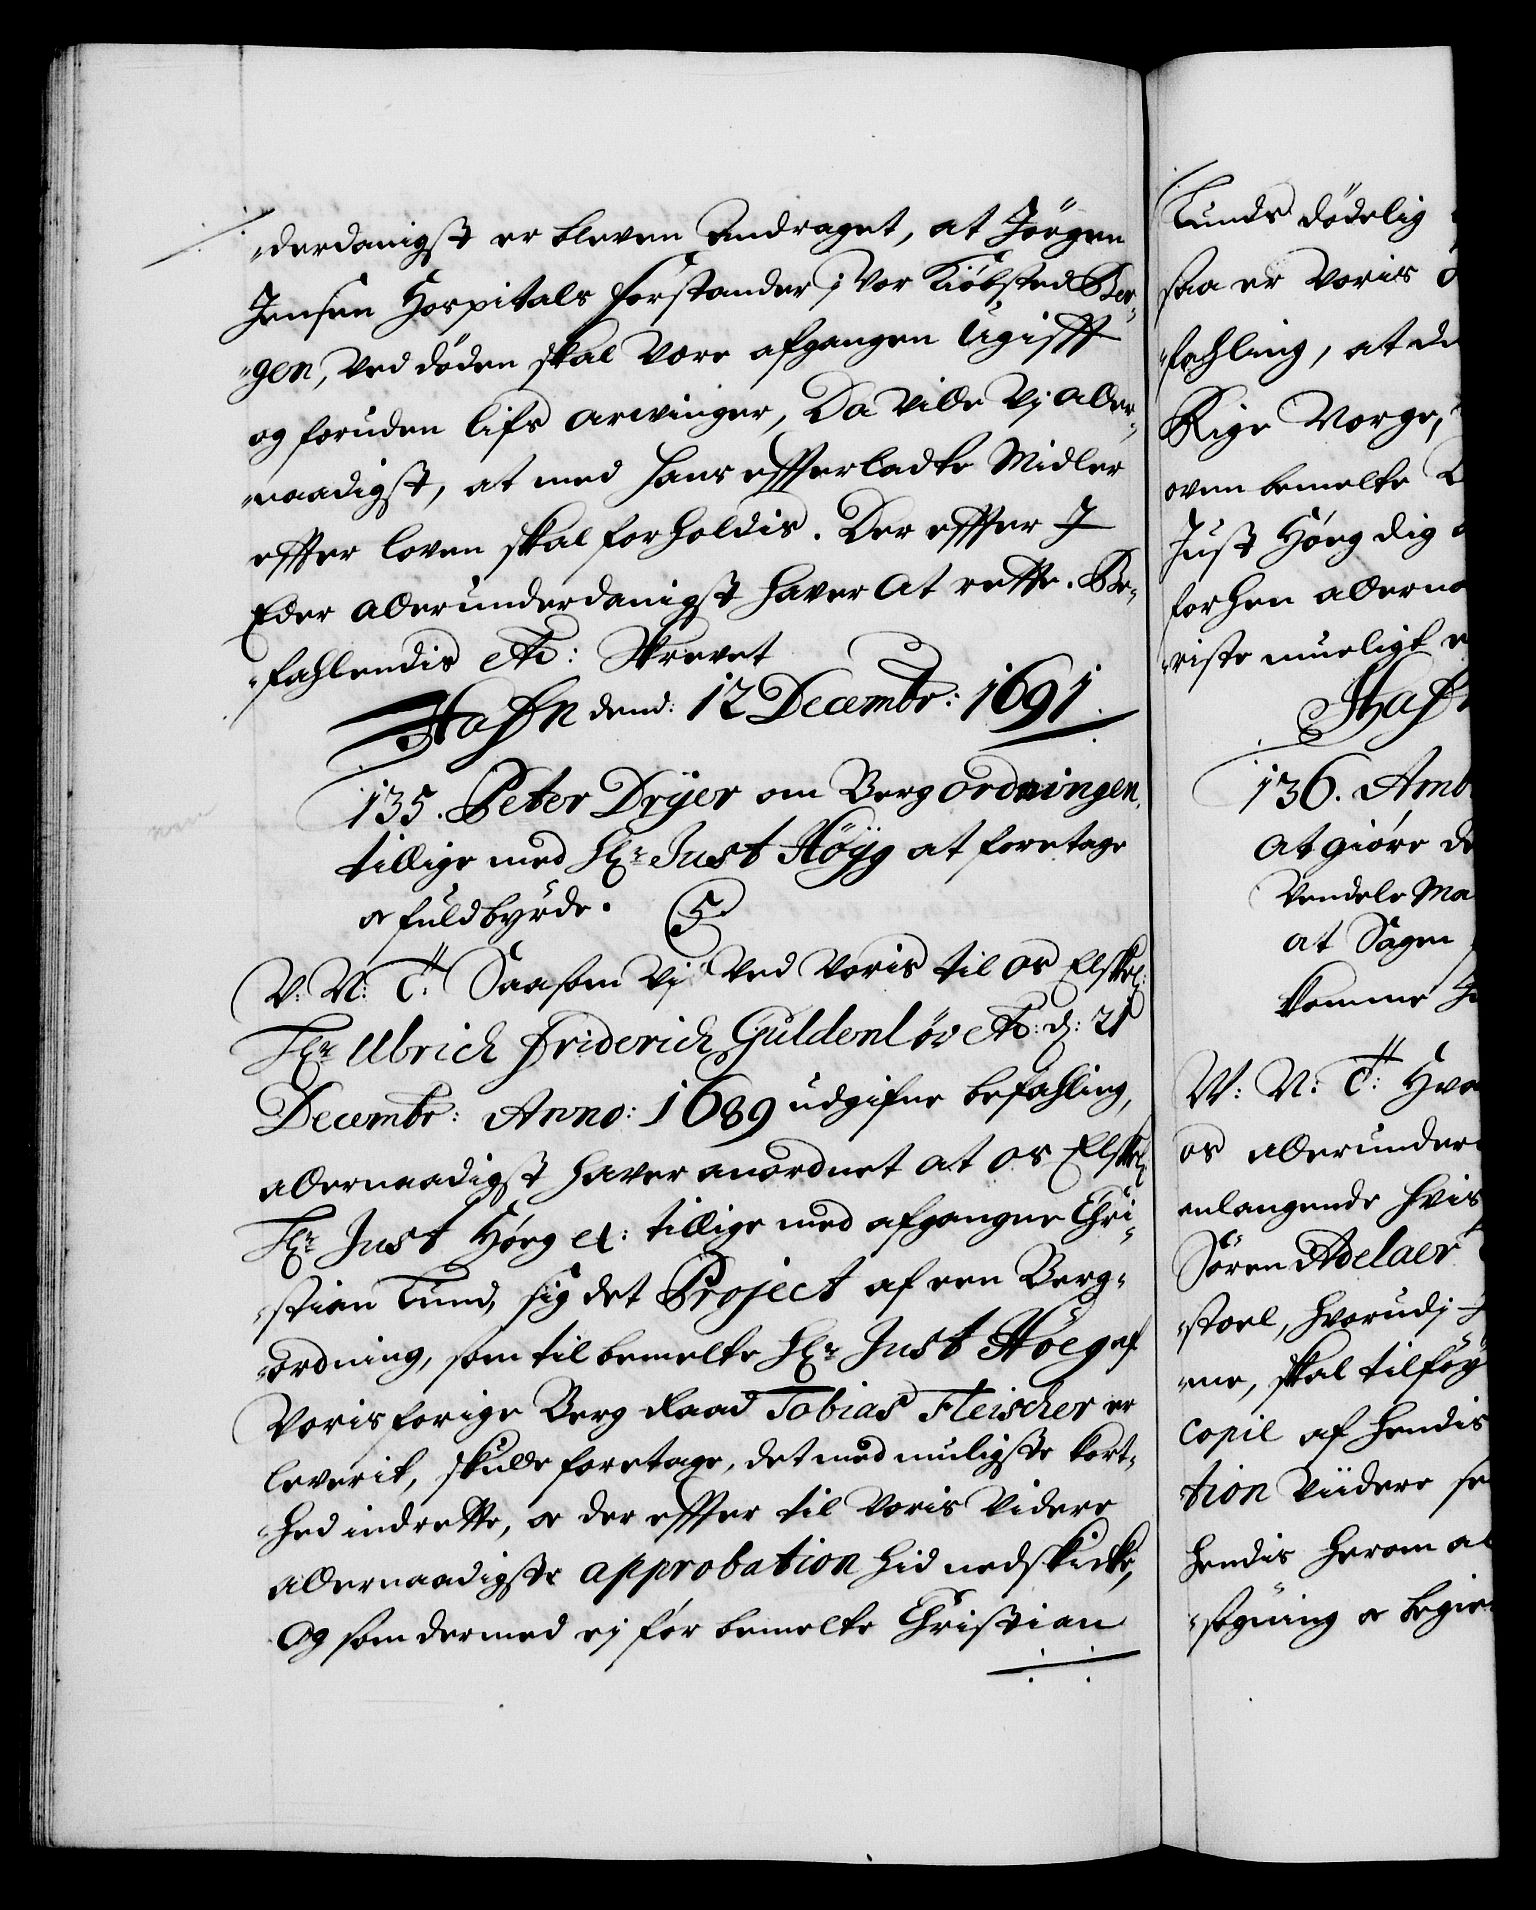 -derdanigst er bleven andraget, at Jörgen
Jensen Hospitals forstander i vor Kiøbsted Ber-
-gen, ved døden skal være afgangen Ugifft
og foruden lifs arwinger, Da ville Vj aller-
-naadigst, at med hans effterladte Midler
effter loven skal forholdis. Der effter I
Eder allerunderdanigst haver at rette. Be-
-fahlendis etc: Skrevet
Hafn dend: 12 Decembr: 1691.
135. Peter Dryer om Berg ordningen,
tillige med Hr Just Höyg at foretage
oc fuldbyrde. 5.
V: N: T: Saasom Vj ved Voris til os Elskel:
Hr Ulrich Friderich Guldenlöv etc: d: 21
Decembr: Anno: 1689 udgifne befahling,
allernaadigst haver anordnet at os Elskel:
Hr Just Høeg et: tillige med afgangne Chri-
-stian Lund, sig det Project af een Berg-
-ordning, som til bemelte Hr Just Höeg af
Voris forige Berg Raad Tobias Fleischer er
leverit, skulle foretage, det med muligste kort-
-hed indrette, oc der effter til Voris Videre
allernaadigste approbation hid nedskicke,
Og som dermed ej før bemelte Christian
Lunds dödelig
saa er Voris
-fahling, at de
Rige Norge,
oven bemelte
Just Høeg dig
forhen allerna
-riste mueligt
Hafn
136. Amb
at giøre de
Vendele Ma
at Sagen
komme
W: N: T: Hva
os allerunder
anlangende hvis
Sören Adelaer
-stoel, hvorudj
-ne, skal tilføy
copil af hendis
tion viidere
hendis herom al
-søgning oc begie